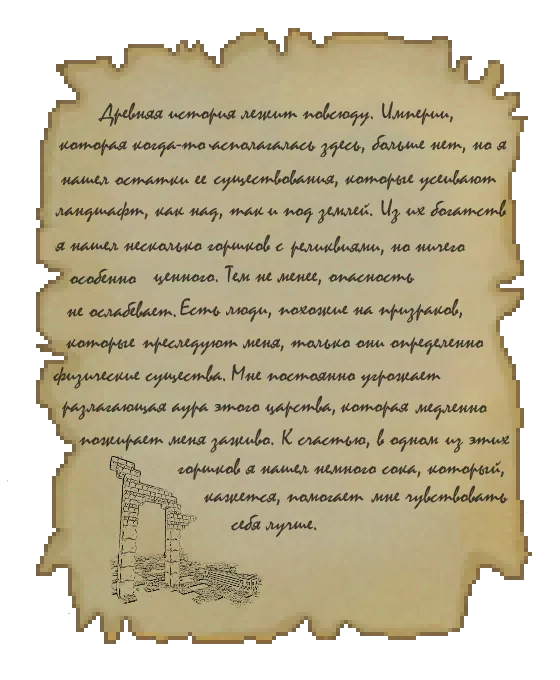 Древняя история лежит повсюду. Империи,
которая когда-то асполагалась здесь, больше нет, но я
нашел остатки ее существования, которые усеивают
ландшафт, как над, так и под землей. Из их богатств
я нашел несколько горшков с реликвиями, но ничего
особенно ценного. Тем не менее, опасность
не ослабевает. Есть люди, похожие на призраков,
которые преследуют меня, только они определенно
физические существа. Мне постоянно угрожает
разлагающая аура этого царства, которая медленно
пожирает меня заживо. К счастью, в одном из этих
горшков я нашел немного сока, который,
кажется, помогает мне чувствовать
себя лучше.